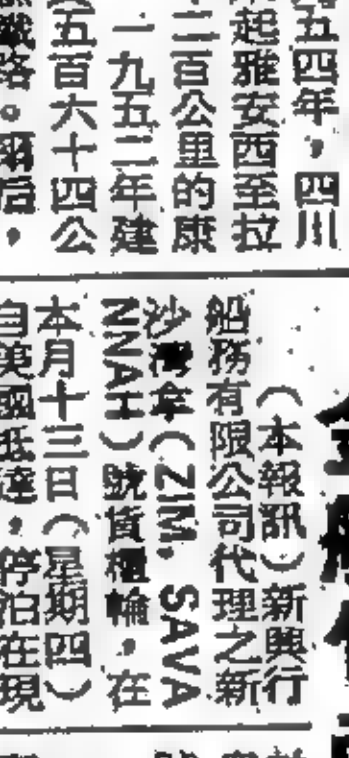 五四年，四川
起雅安西至拉
二百公里的康
一九五二年建
五百六十四公
鐵路。
（本報訊）新興行
船務有限公司代理之新
沙灣拿（ZIM, SAVA
NNAH）號貨櫃輪，在
本月十三日（星期四）
自美國抵達，停泊在現